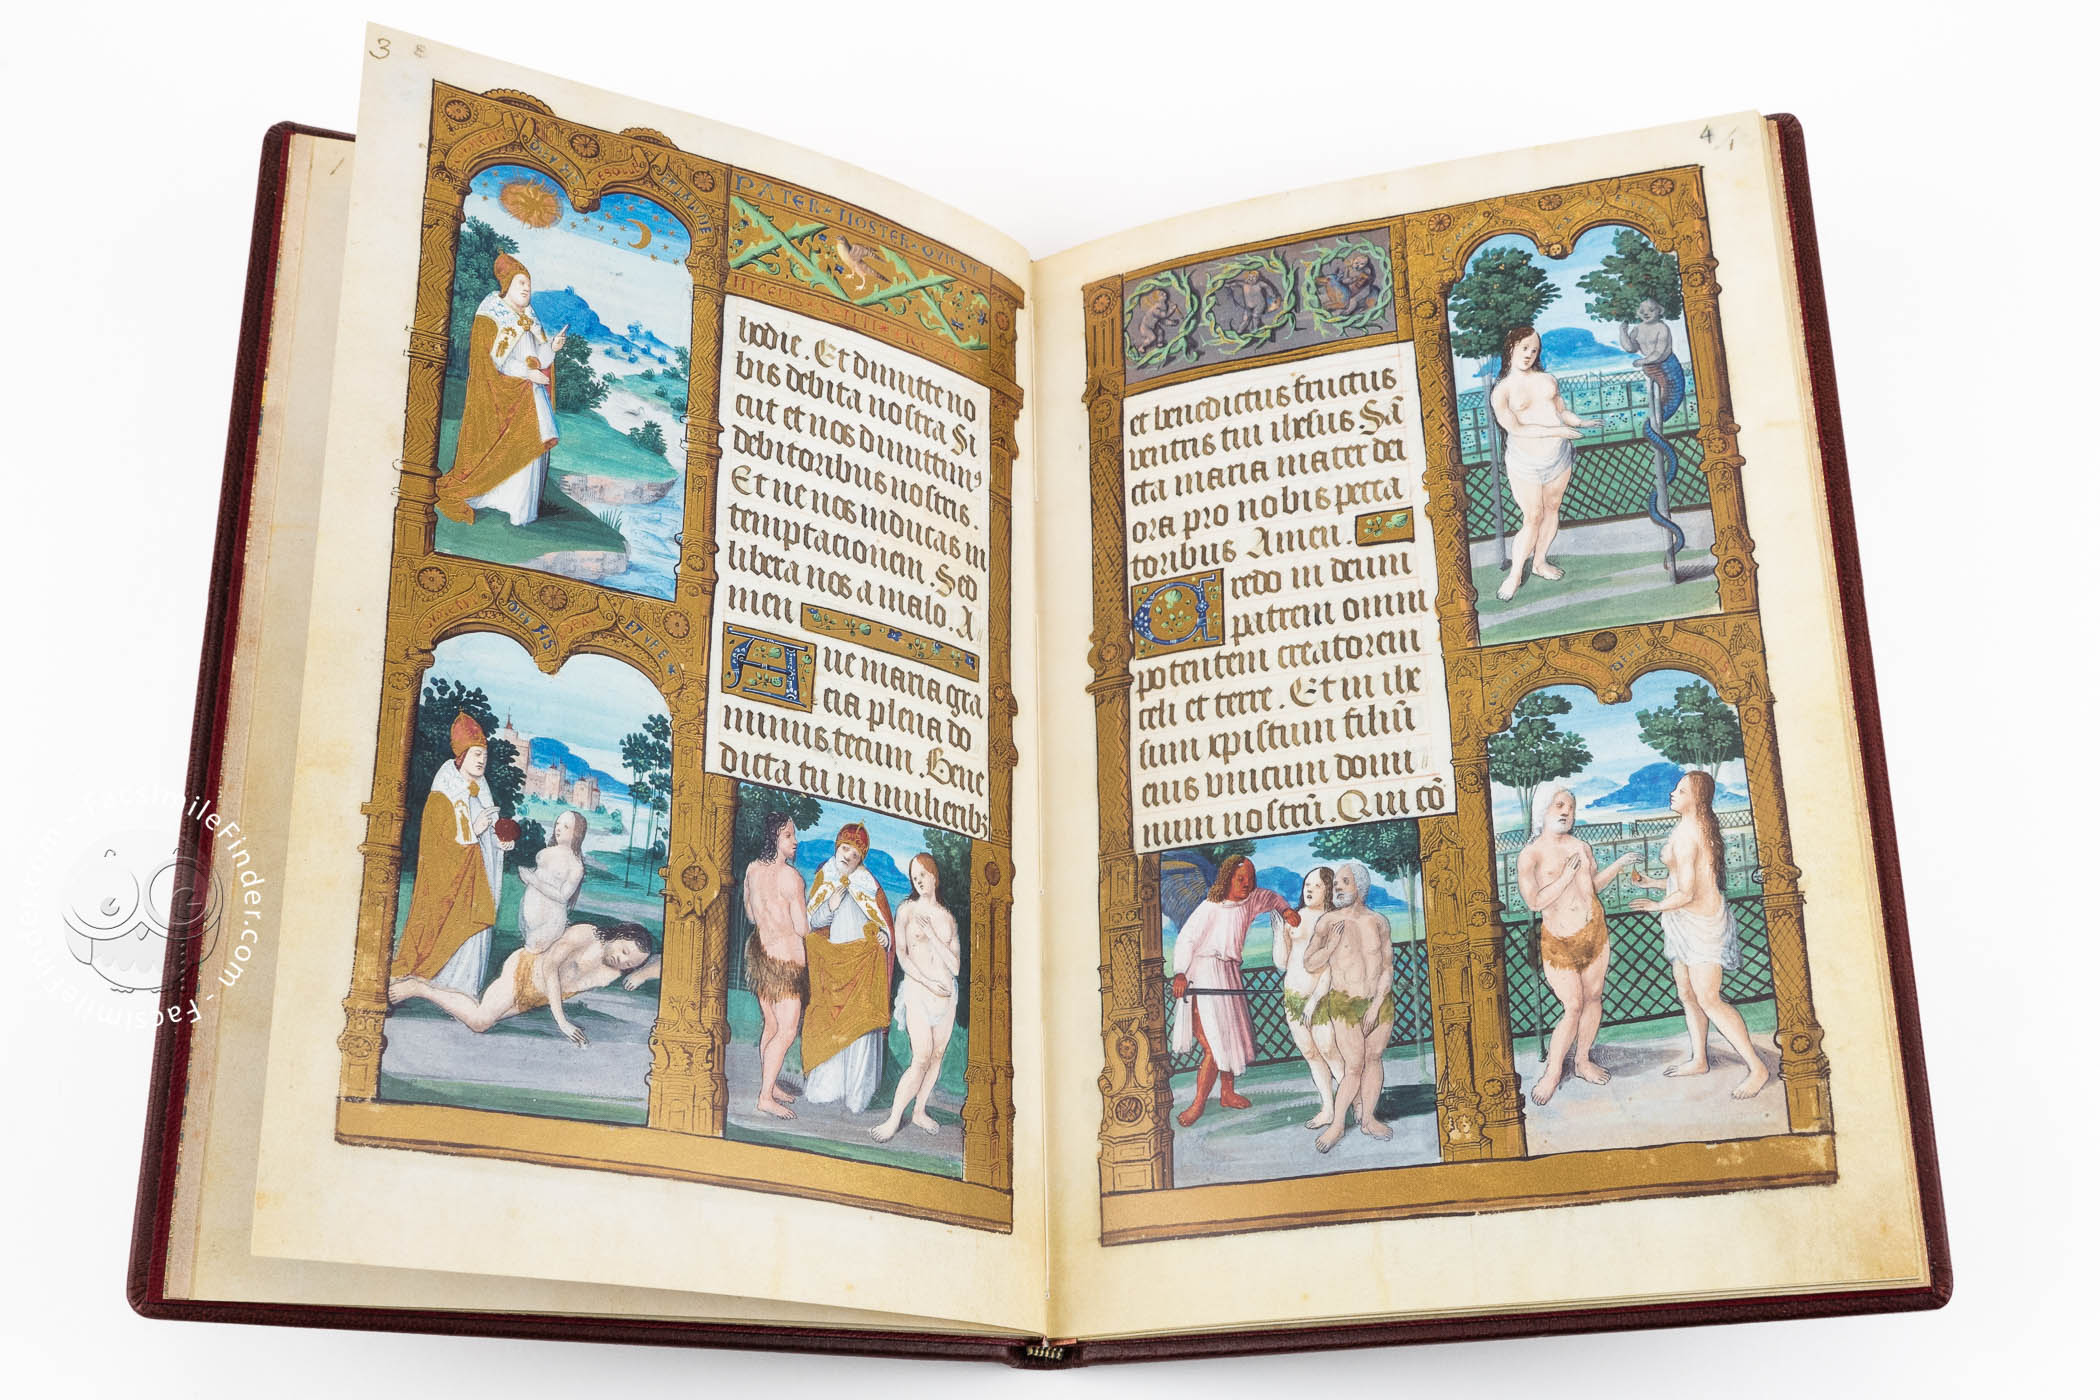 3
PATER · NOSTER · QVI EST
IN CELIS
hodie. Et dimitte no
bis debita nostra Si
cut et nos dimittim⁹
debitoribus nostris.
Et ne nos inducas in
temptacionem. Sed
libera nos a malo. A
men
Aue maria gra
cia plena do
minus tecum. Bene
dicta tu in mulierib⁹
4
et benedictus fructus
ventris tui ihesus. Sā
cta maria mater dei
ora pro nobis pecca
toribus Amen.
Credo in deum
patrem omni
potentem creatorem
celi et terre. Et in ihe
sum xpistum filiū
eius vnicum domi
num nostrū. Qui cō
FacsimileFinder.com - FacsimileFinder.com -